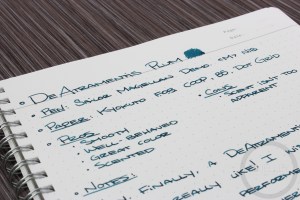 • DeAtramentis Plum
• Pen: Sailor Magellan Demo
• Paper: Kyokuto FOB COOP, B5, Dot Grid
• Pros:
• Smooth
• Well-behaved
• Great color
• Scented
• Cons:
• Scent isn't too apparent
• Notes:
Finally, a DeAtramentis
like! I
really
performe